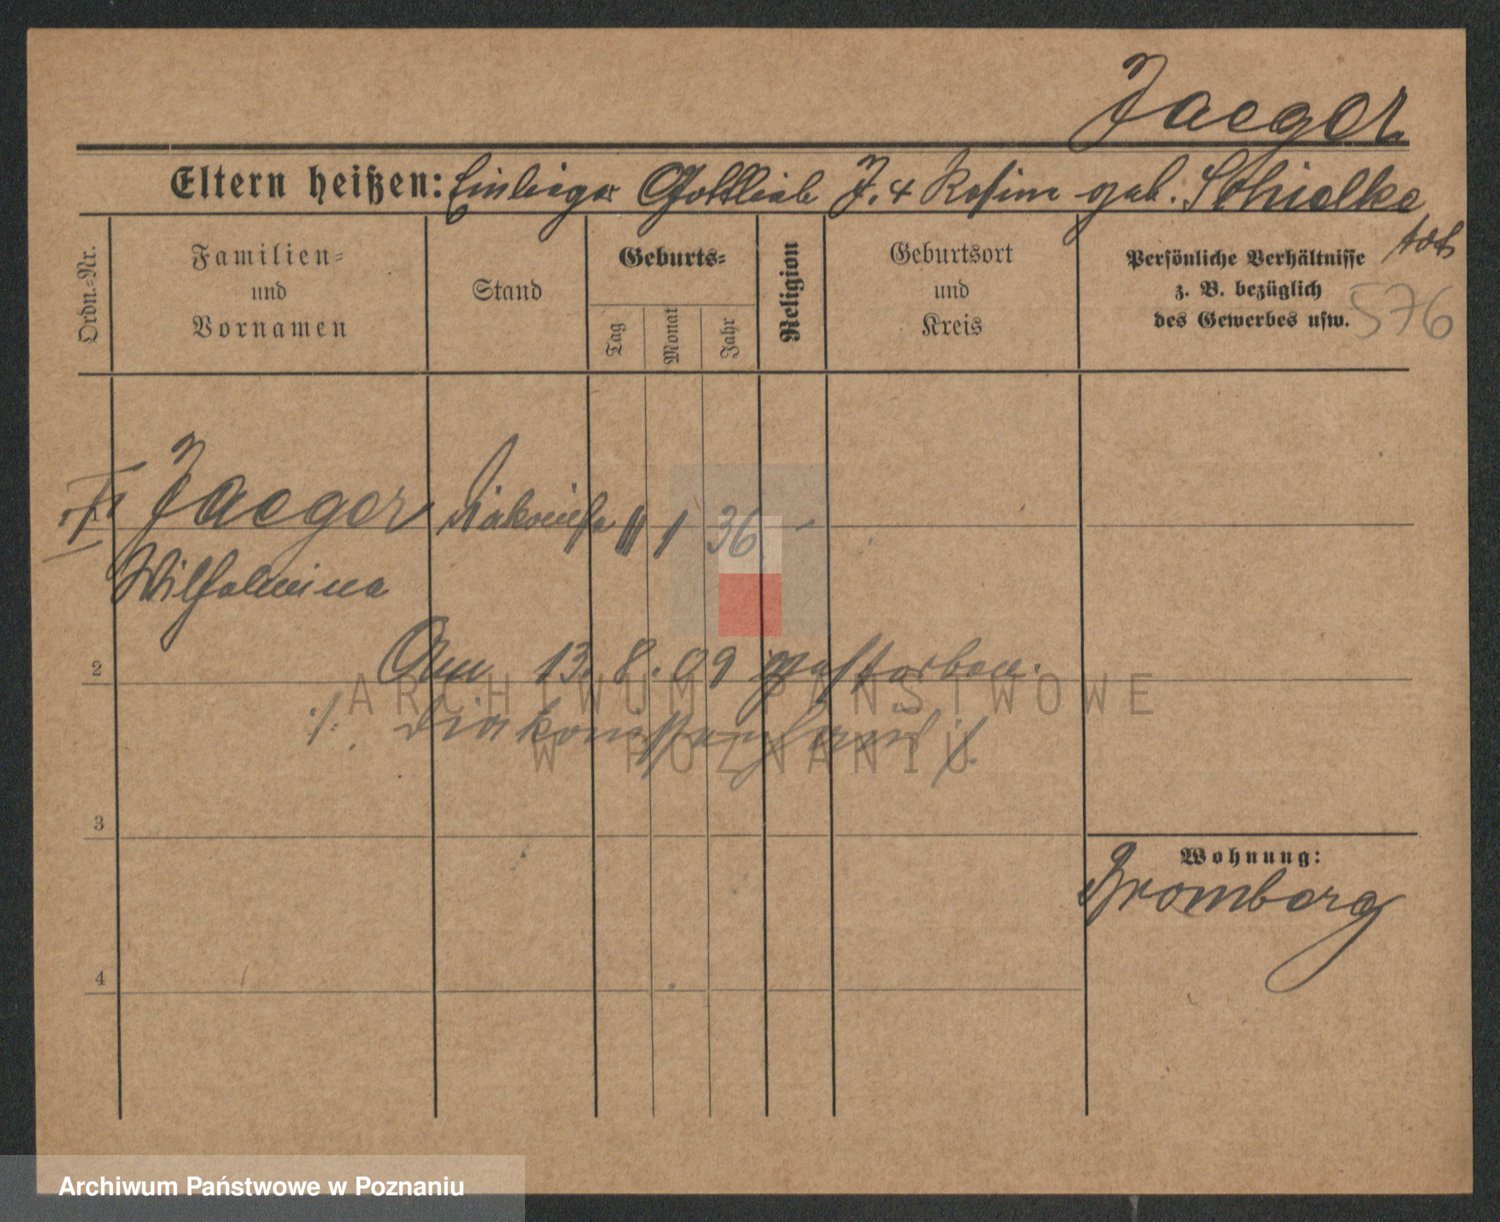 Jaeger
Eltern heißen: Einlieger Gottlieb J. + Rosine geb. Schielke
tot
Ordn.-Nr.
Familien-
und
Vornamen
Stand
Geburts-
Tag
Monat
Jahr
Religion
Geburtsort
und
Kreis
Persönliche Verhältnisse
z. B. bezüglich
des Gewerbes usw.
576
1
Jaeger Diakonisse 1 36 -
Wilhelmina
2
Am 13.8.09 gestorben.
ARCHIWUM PAŃSTWOWE
W POZNANIU
3
Wohnung:
Bromberg
4
Archiwum Państwowe w Poznaniu